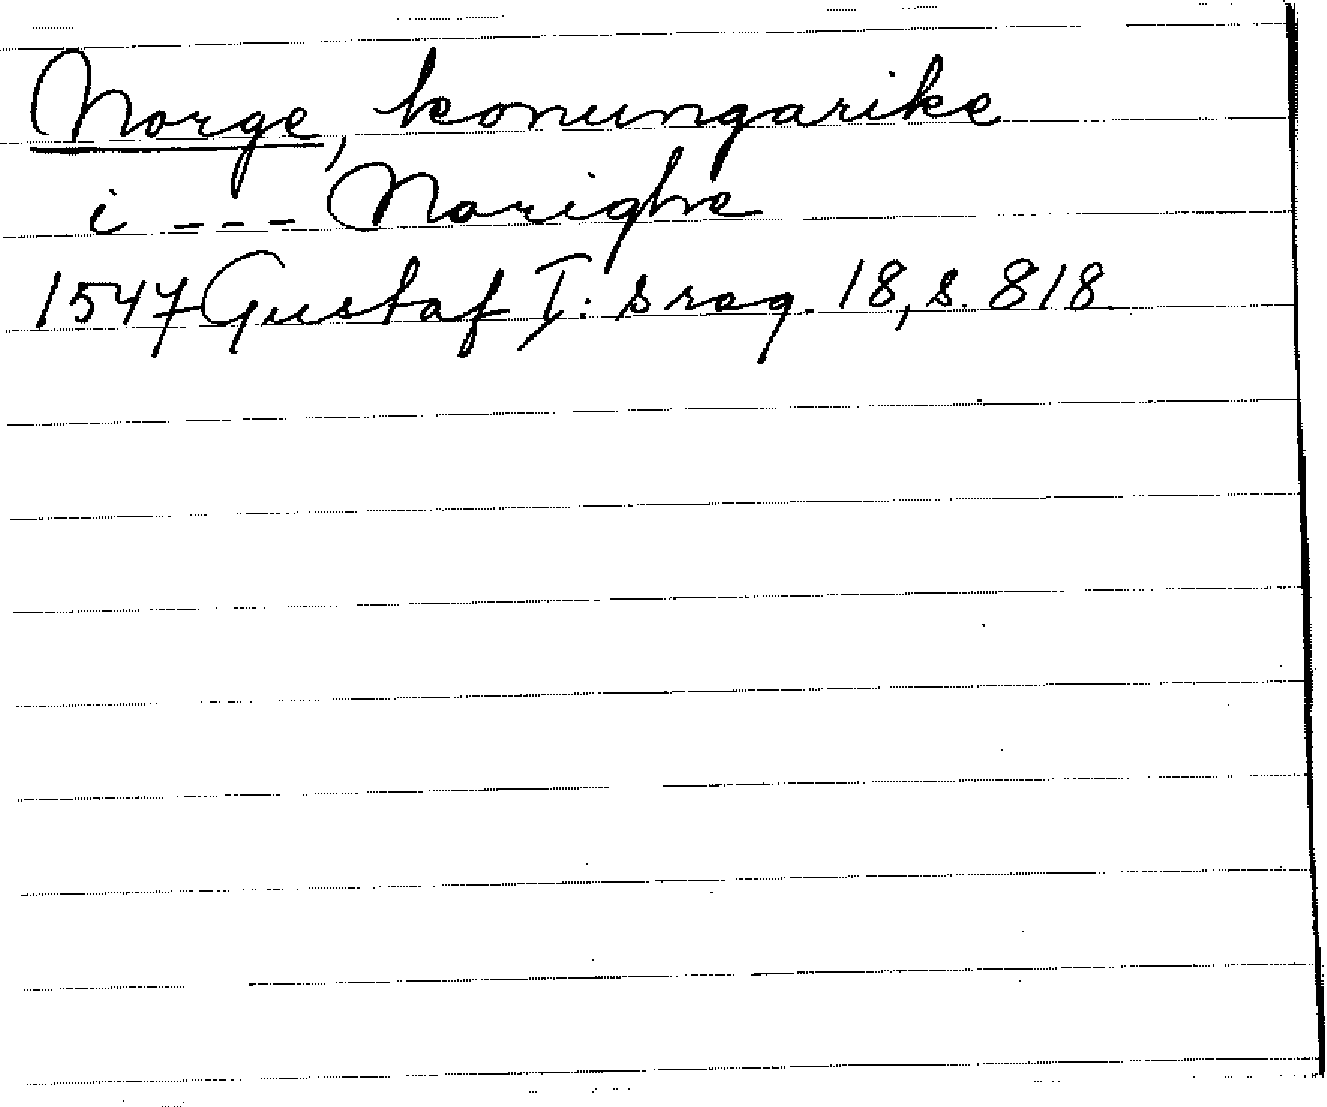 Norge, konungarike
i --- Norighe
1547 Gustaf I:s reg. 18, s. 818